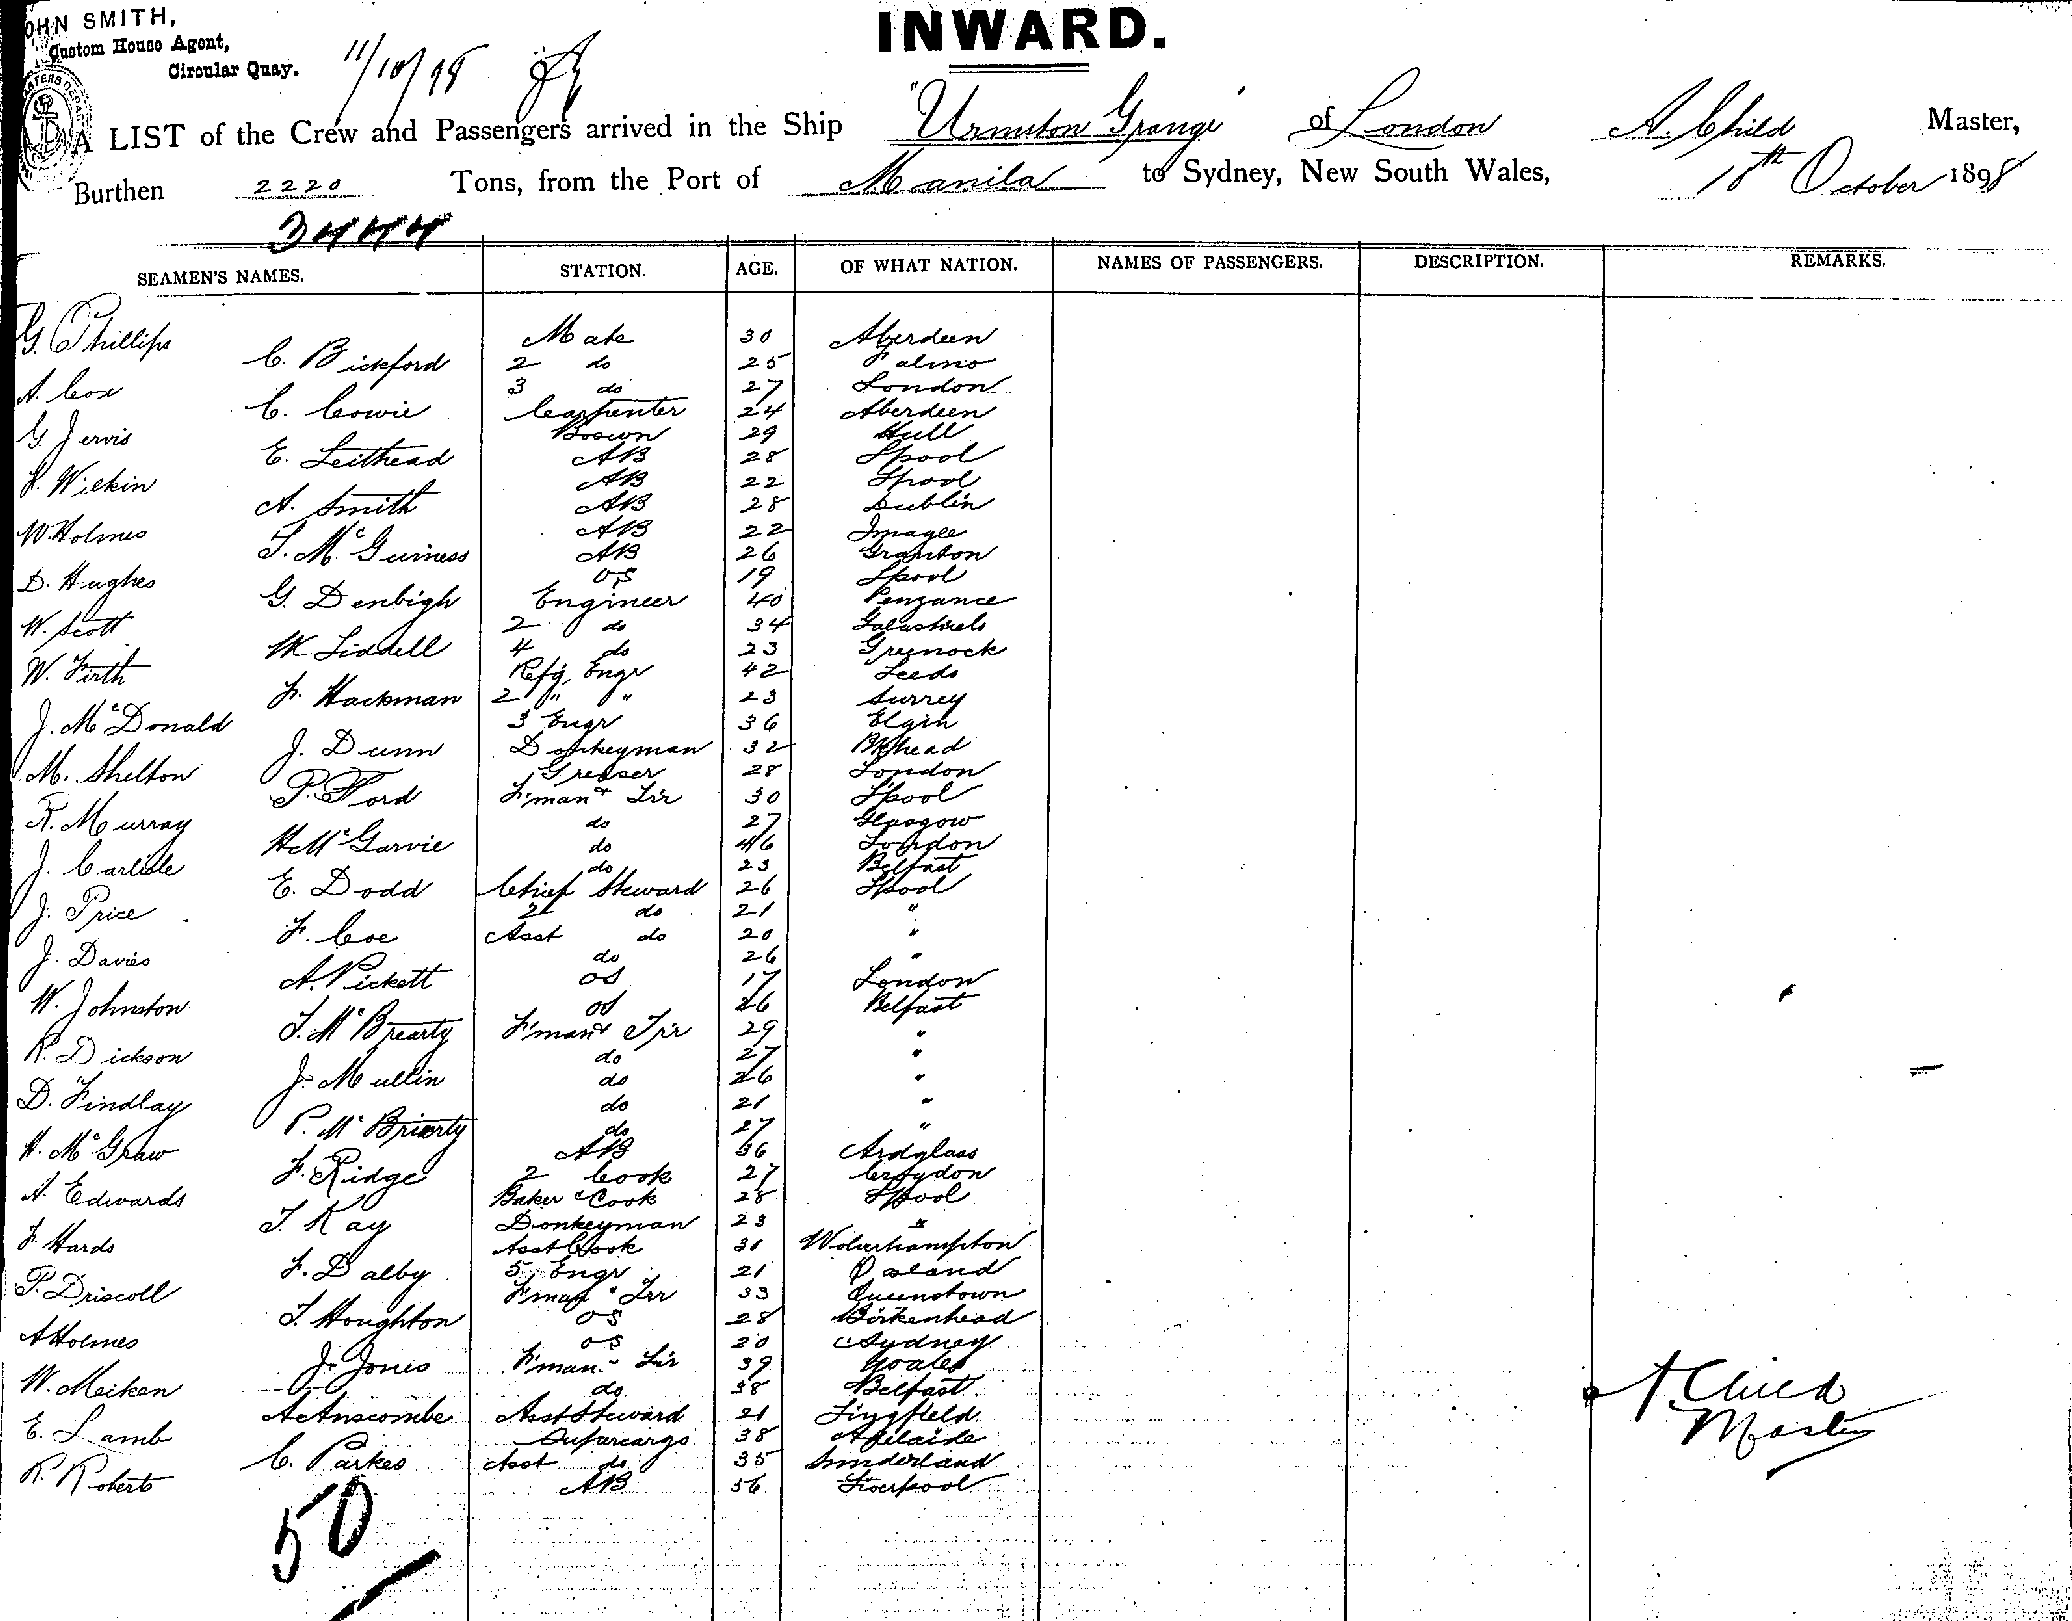 JOHN SMITH,
Custom House Agent,
Circular Quay.
11/10/98
INWARD.
A LIST of the Crew and Passengers arrived in the Ship "Urmston Grange" of London A. Child Master,
Burthen 2220 Tons, from the Port of Manila to Sydney, New South Wales, 10th October 1898
3444
SEAMEN'S NAMES. STATION. AGE. OF WHAT NATION. NAMES OF PASSENGERS. DESCRIPTION. REMARKS.
G. Phillips Mate 30 Aberdeen
C. Bickford 2 do 25 Falmo
A. Cox 3 do 27 London
C. Cowie Carpenter 24 Aberdeen
G Jervis Bosun 29 Hull
E. Leithead AB 28 Lpool
Wilkin AB 22 Lpool
A. Smith AB 28 Dublin
W Holmes AB 22
T. McGuiness AB 26 Granton
D. Hughes OS 19 Lpool
G. Denbigh Engineer 40 Penzance
W. Scott 2 do 34 Galashiels
W Liddell 4 do 23 Greenock
W. Firth Refg. Engr 42 Leeds
F. Hackman 2 " " 23 Surrey
J. McDonald 3 Engr 36 Elgin
J. Dunn Donkeyman 32 B'head
M. Shelton Greaser 28 London
P. Ford F'man & Tir 30 Lpool
R. Murray do 27 Glasgow
H McGarvie do 46 London
J. Carlisle do 23 Belfast
E. Dodd Chief Steward 26 Lpool
J. Price 2 do 21 "
F. Coe Asst do 20 "
J. Davies do 26 "
A. Pickett OS 17 London
W. Johnston OS 26 Belfast
T. McBrearty F'man & Tir 29 "
R. Dickson do 27 "
J. Mullin do 26 "
D. Findlay do 21 "
P. McBrierty do 27 "
H. McGraw AB 36 Ardglass
F. Ridge 2 Cook 27 Croydon
A. Edwards Baker & Cook 28 Lpool
T. Kay Donkeyman 23 "
F Hards Asst Cook 31 Wolverhampton
F. Dalby 5 Engr 21
P. Driscoll F'man & Tir 33 Queenstown
T. Houghton OS 28 Birkenhead
A Holmes OS 20 Sydney
J. Jones F'man & Tir 39 Wales
W. Meiken do 38 Belfast
A Anscombe Asst Steward 21 Lingfield
E. Lamb Supercargo 38 Adelaide
C. Parkes Asst do 35 Sunderland
R. Roberts AB 56 Liverpool
A. Child
Master
50